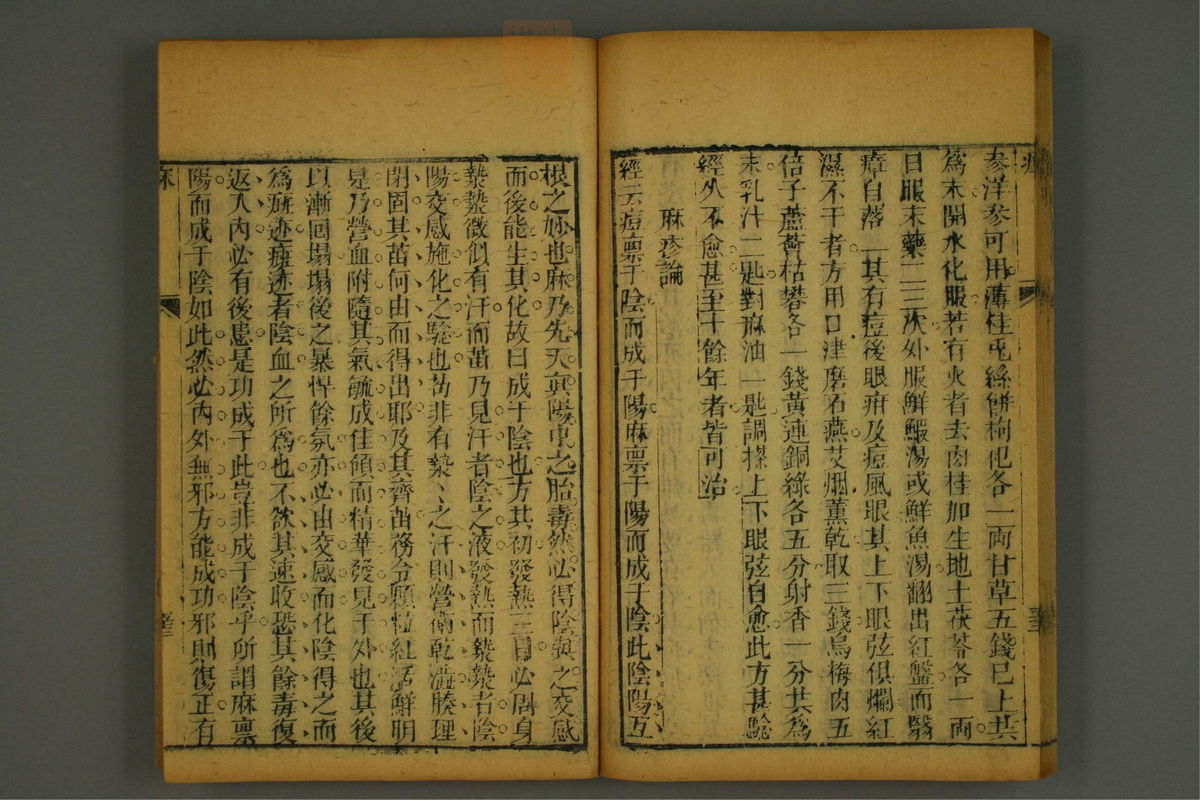 參洋參可用薄佳兎絲餅枸杞各一両甘草五錢已上共
為末開水化服若有火者去肉桂加生地土茯苓各一両
日服末藥二三次外服鮮鰕湯或鮮魚湯翻出紅盤而翳
瘴自落一其有痘後眼疳及痘風眼其上下眼弦俱爛紅
濕不干者方用口津磨石燕艾烟薰乾取三錢烏梅肉五
倍子蘆薈枯礬各一錢黃連銅綠各五分射香一分共為
末乳汁二匙對麻油一匙調搽上下眼弦自愈此方甚驗
經久不愈甚至十餘年者皆可治
麻疹論
經云痘禀于陰而成于陽麻禀于陽而成于陰此陰陽互
根之妙也麻乃先天真陽中之胎毒然必得陰與之交感
而後能生其化故曰成于陰也方其初發熱三日必周身
漐漐微似有汗而茁乃見汗者陰之液發熱而漐漐者陰
陽交感施化之驗也茍非有漐漐之汗則營衛乾澁腠理
閉固其茁何由而得出耶及其齊茁務令顆粒紅活鮮明
是乃營血附隨其氣毓成佳領而精華發見于外也其後
以漸囘塲塲後之暴悍餘氛亦必由交感而化陰得之而
為癍迹癍迹者陰血之所為也不欲其速收恐其餘毒復
返入內必有後患是功成于此豈非成于陰乎所謂麻禀
陽而成于陰如此然必內外無邪方能成功邪則傷正有